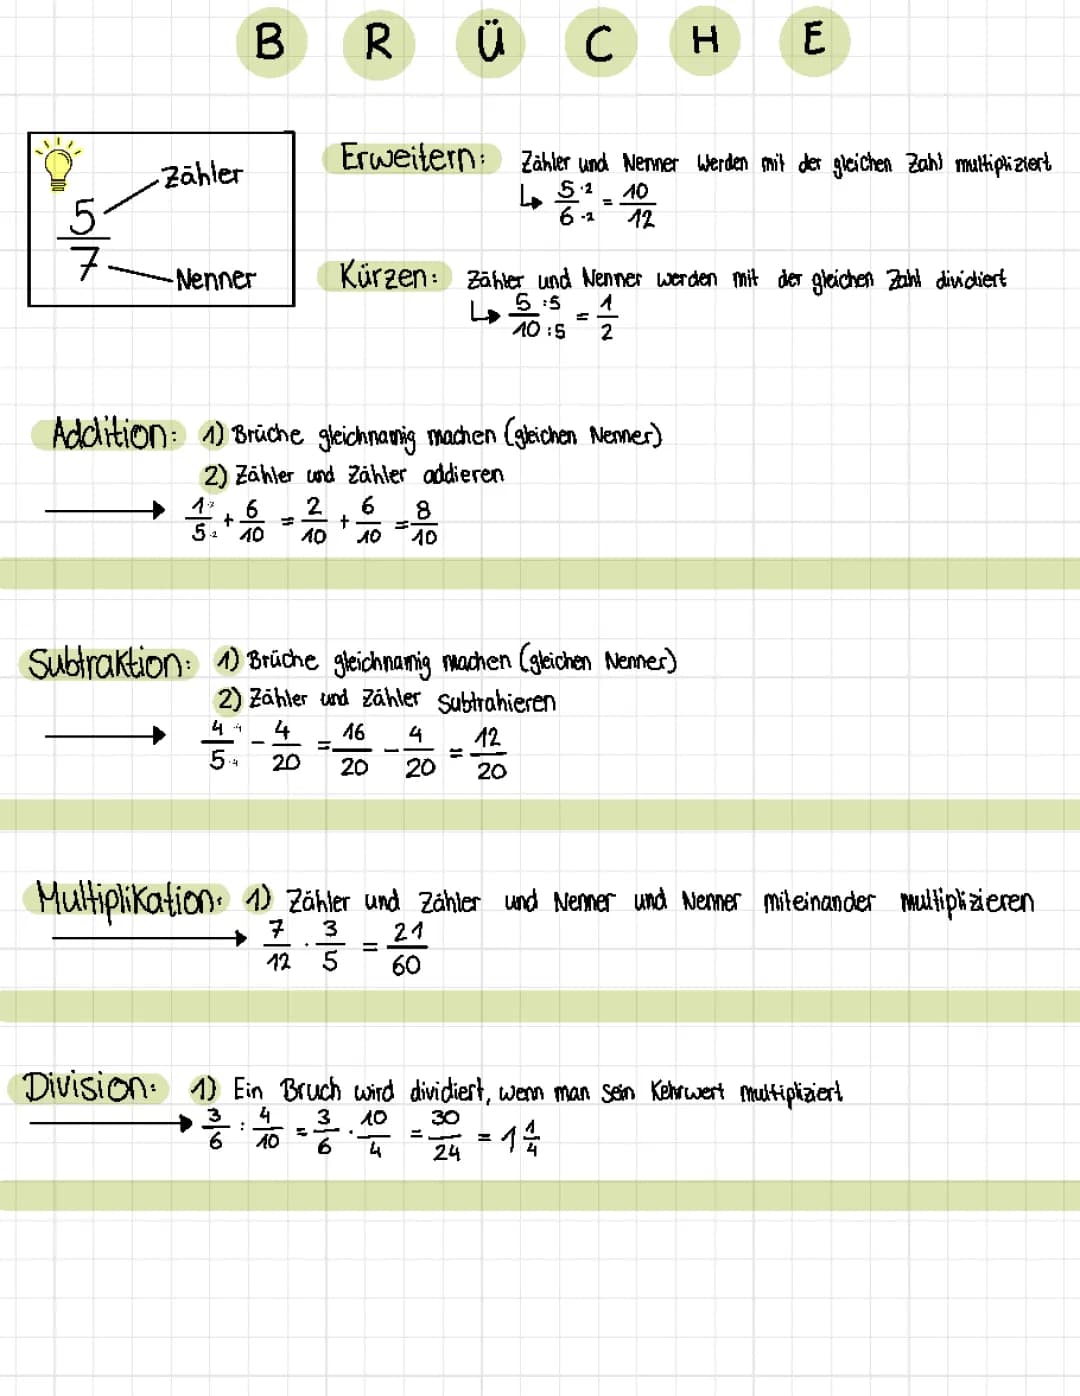 BRÜCHE
Zähler
5/7
Nenner
Erweitern: Zähler und Nenner werden mit der gleichen Zahl multipliziert
5·2/6·2 = 10/12
Kürzen: Zähler und Nenner werden mit der gleichen Zahl dividiert
5:5/10:5 = 1/2
Addition: 1) Brüche gleichnamig machen (gleichen Nenner)
2) Zähler und Zähler addieren
1·2/5·2 + 6/10 = 2/10 + 6/10 = 8/10
Subtraktion: 1) Brüche gleichnamig machen (gleichen Nenner)
2) Zähler und Zähler subtrahieren
4·4/5·4 - 4/20 = 16/20 - 4/20 = 12/20
Multiplikation: 1) Zähler und Zähler und Nenner und Nenner miteinander multiplizieren
7/12 · 3/5 = 21/60
Division: 1) Ein Bruch wird dividiert, wenn man sein Kehrwert multipliziert
3/6 : 4/10 = 3/6 · 10/4 = 30/24 = 1 1/4